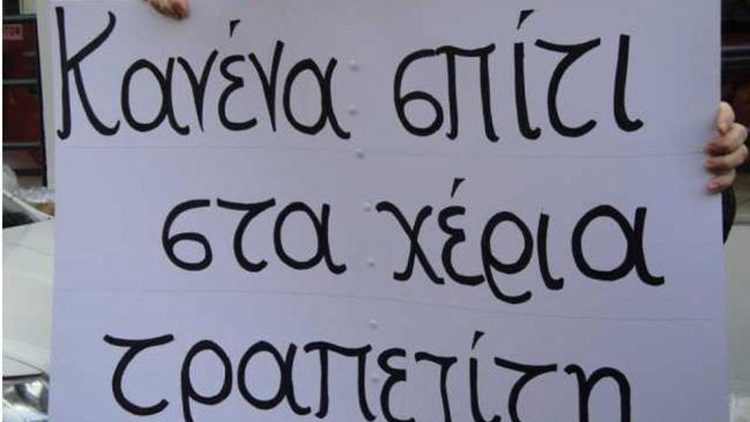 Κανένα σπίτι
στα χέρια
τραπετίτη